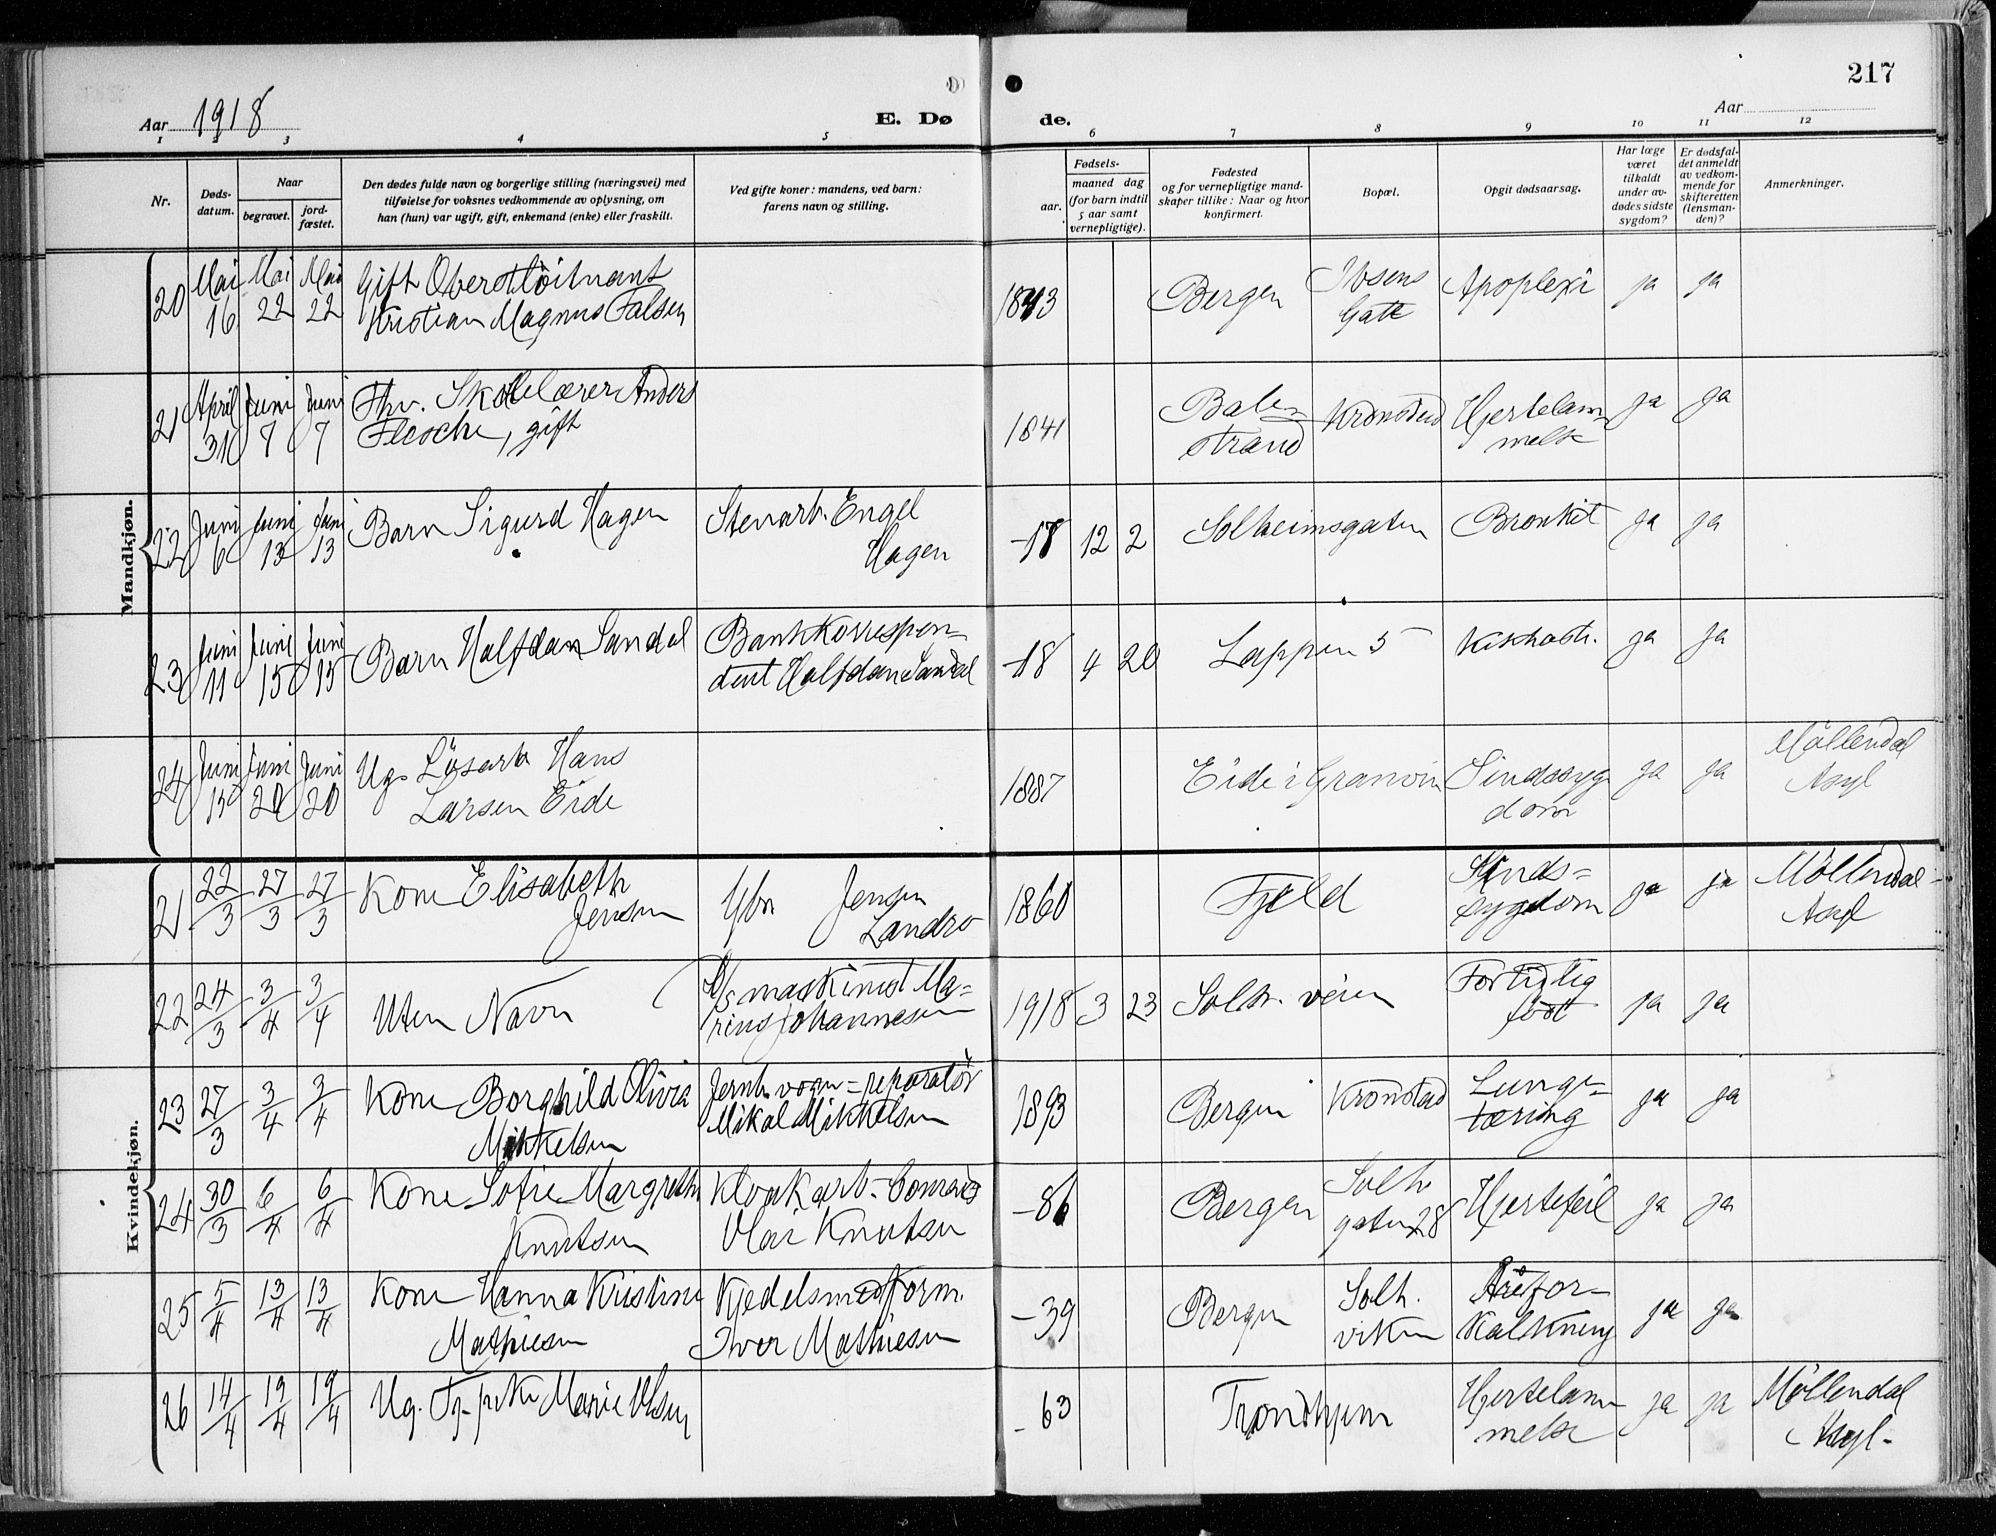 217
Aar 1918
E. Dø
de.
Aar
1 2 3 4 5 6 7 8 9 10 11 12
Nr.
Døds-
datum.
Naar
begravet.
jord-
fæstet.
Den dødes fulde navn og borgerlige stilling (næringsvei) med
tilføielse for voksnes vedkommende av oplysning, om
han (hun) var ugift, gift, enkemand (enke) eller fraskilt.
Ved gifte koner: mandens, ved barn:
farens navn og stilling.
Fødsels-
aar.
maaned dag
(for barn indtil
5 aar samt
vernepligtige).
Fødested
og for vernepligtige mand-
skaper tillike: Naar og hvor
konfirmert.
Bopæl.
Opgit dødsaarsag.
Har læge
været
tilkaldt
under av-
dødes sidste
sygdom?
Er dødsfal-
det anmeldt
av vedkom-
mende for
skifteretten
(lensman-
den)?
Anmerkninger.
Mandkjøn.
20 Mai 16 Mai 22 Mai 22 Gift Oberstløitnant
Kristian Magnus Falsen
1843 Bergen Ibsens
Gate Apoplexi ja ja
21 April 31 Juni 7 Juni 7 Fhv. Skolelærer Anders
Flesche, gift
1841 Balen
strand Kronstad Hjertelam
melse ja ja
22 Juni 6 Juni 13 Juni 13 Barn Sigurd Hagen
Stenarb. Engel
Hagen
-18 12 2 Solheimsgaten Bronkit ja ja
23 Juni 11 Juni 15 Juni 15 Barn Halfdan Sandal
Bankkorrespon-
dent Halfdan Sandal
-18 4 20 Lappen 5 Kikhoste. ja ja
24 Juni 15 Juni 20 Juni 20 Ug. Løsarb Hans
Larsen Eide
1887 Eide i Granvin Sindssyg
dom ja ja Møllendal
Asyl
Kvindekjøn.
21 22/3 27/3 27/3 Kone Elisabeth
Jensen
Jensen
Landro
1860 Fjeld Sinds=
sygdom ja ja Møllendal
Asyl
22 24/3 3/4 3/4 Uten Navn
D/s maskinist Ma=
rius Johannesen
1918 3 23 Solh. veien Fortidlig
født ja ja
23 27/3 3/4 3/4 Kone Borghild Olivia
Mikkelsen
Jernb. vogn=reparatør
Mikal Mikkelsen
1893 Bergen Kronstad Lunge=
tæring ja ja
24 30/3 6/4 6/4 Kone Sofie Margrethe
Knutsen
Kloakarb- Conrad
Olai Knutsen
-86 Bergen Solh
gaten 28 Hjertefeil ja ja
25 5/4 13/4 13/4 Kone Hanna Kristine
Mathiesen
Kjedelsmedform.
Iver Mathiesen
-39 Bergen Solh.
viken Årefor-
kalkning ja ja
26 14/4 19/4 19/4 Ug. Tj. pike Marie Olsen
-63 Trondhjem Hjertelam
melse ja ja Møllendal
Asyl-